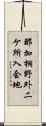 那加桐野外二ケ所入会地